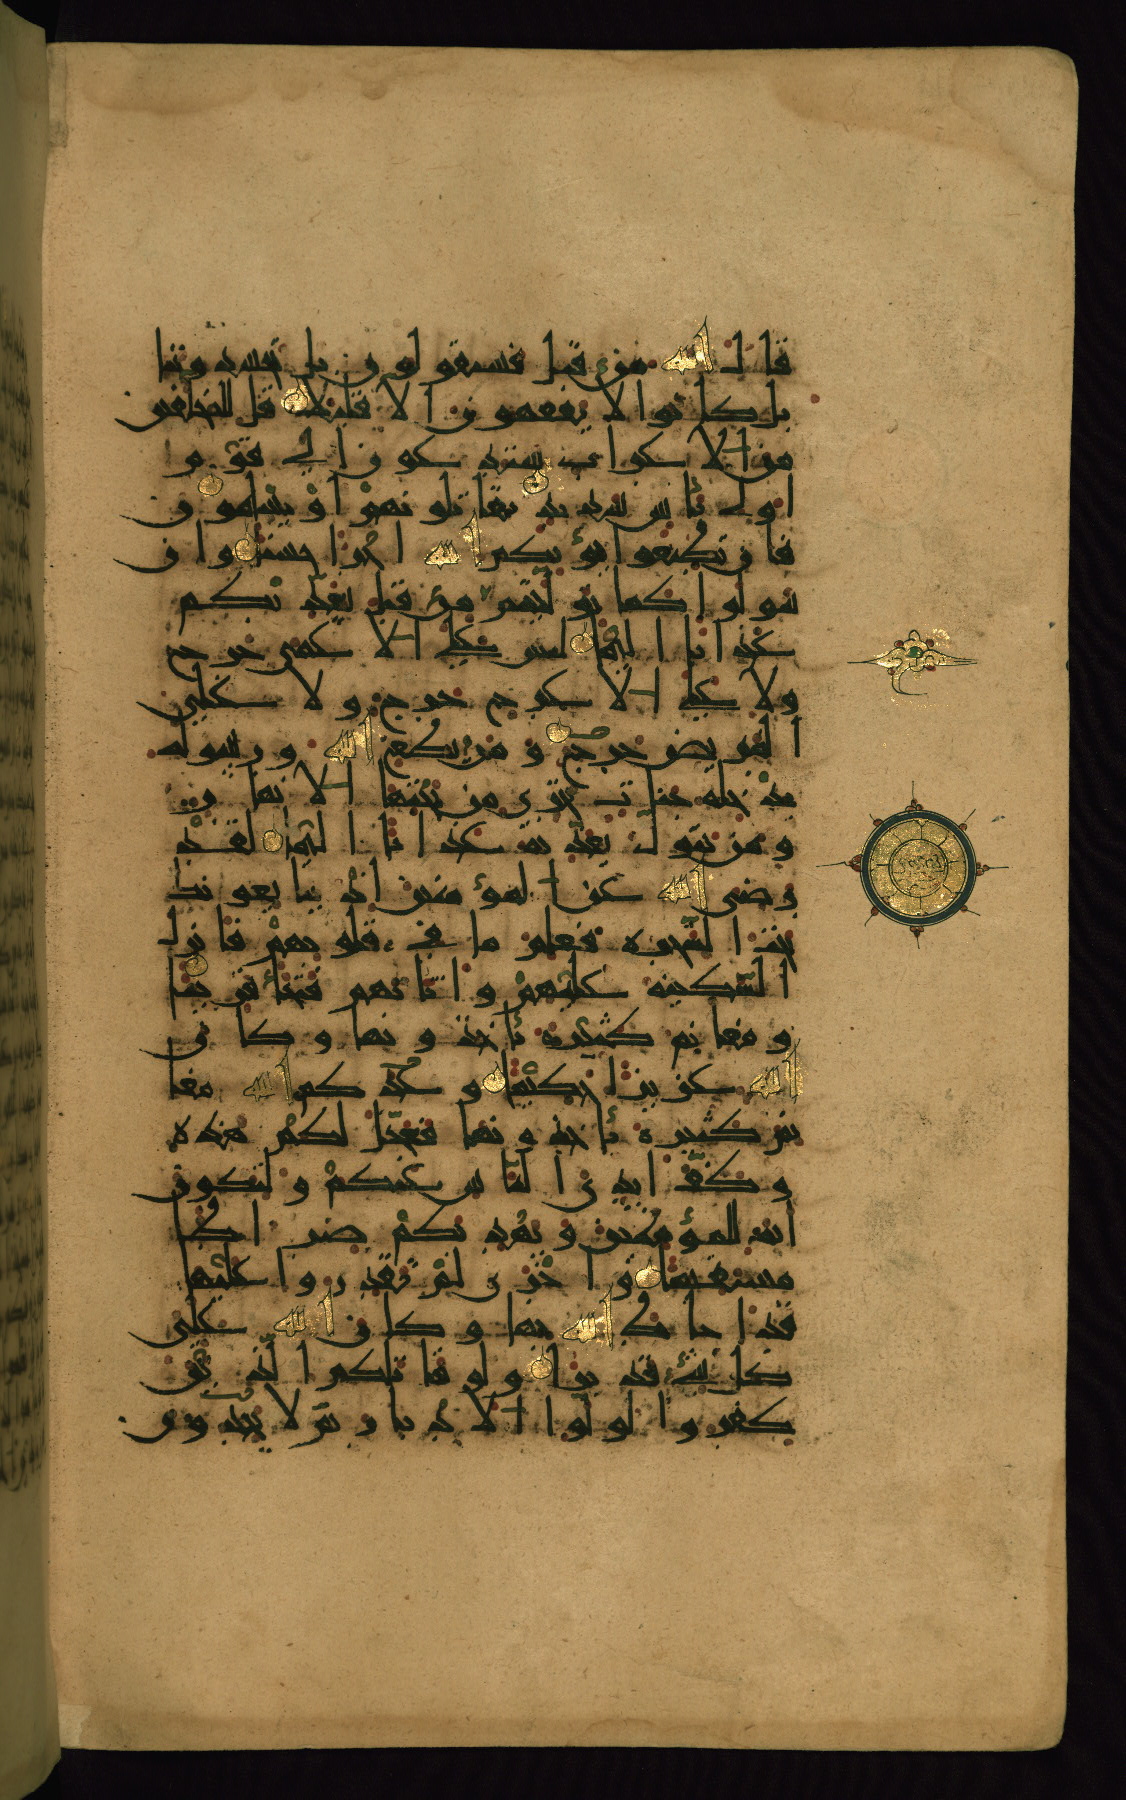 قال الله من قبل فسيقولون بل تحسدوننا
بل كانوا لا يفقهون الا قليلا قل للمخلفين
من الاعراب ستدعون الى قوم
اولي بأس شديد تقاتلونهم أو يسلمون
فان تطيعوا يؤتكم الله اجرا حسنا وان
تتولوا كما توليتم من قبل يعذبكم
عذابا اليما ليس على الاعمى حرج
ولا على الاعرج حرج ولا على
المريض حرج ومن يطع الله ورسوله
يدخله جنات تجري من تحتها الانهار
ومن يتول يعذبه عذابا اليما لقد
رضي الله عن المؤمنين اذ يبايعونك
تحت الشجرة فعلم ما في قلوبهم فانزل
السكينة عليهم واثابهم فتحا قريبا
ومغانم كثيرة يأخذونها وكان
الله عزيزا حكيما وعدكم الله مغا
نم كثيرة تأخذونها فعجل لكم هذه
وكف ايدي الناس عنكم ولتكون
اية للمؤمنين ويهديكم صراطا
مستقيما واخرى لم تقدروا عليها
قد احاط الله بها وكان الله على
كل شيء قديرا ولو قاتلكم الذين
كفروا لولوا الادبار ثم لا يجدون